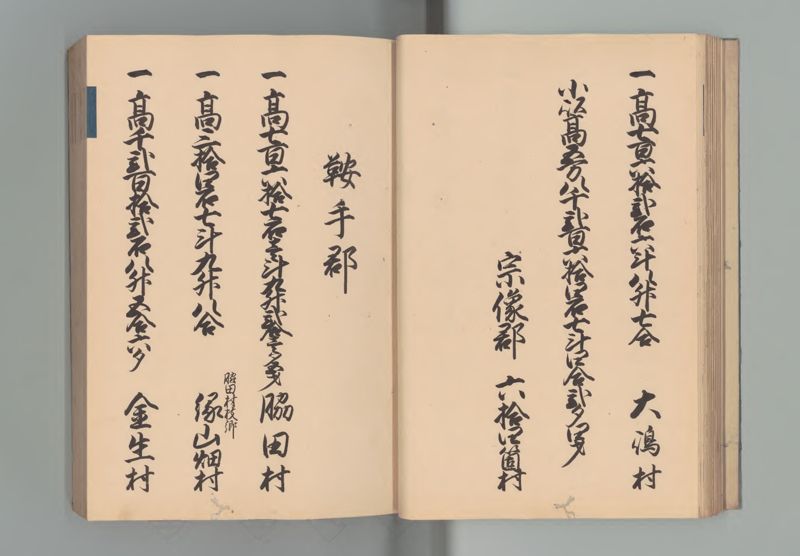 一高七百八拾弐石六斗八升七合 大嶋村
小以高五万八千弐百八拾四石七斗四合弐夕四才
宗像郡 六拾四箇村
鞍手郡
一高七百六拾七石壱斗九升 脇田村
一高三拾四石七斗九升八合 脇田村枝郷 縁山畑村
一高千弐百拾弐石八升五合六夕 金生村